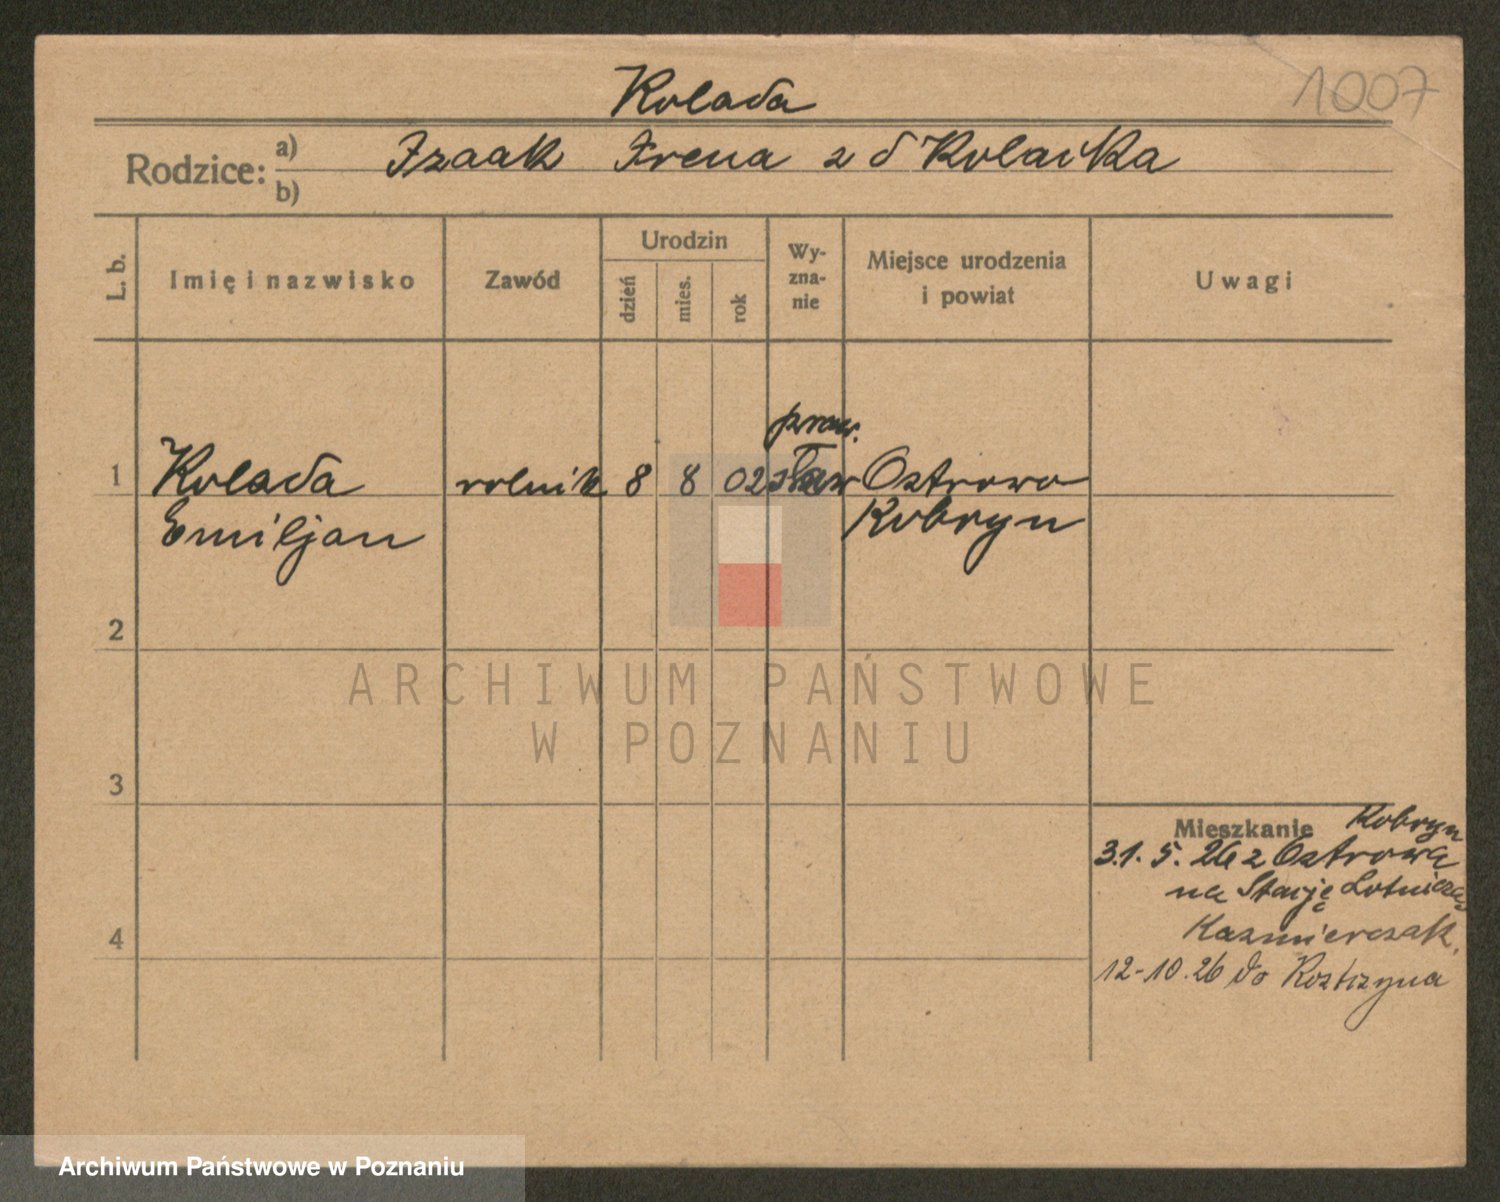 Kolada
1007
Rodzice: a) Izaak Irena z d Kolaika
b)
L. b.
Imię i nazwisko
Zawód
Urodzin
dzień
mies.
rok
Wy-
zna-
nie
Miejsce urodzenia
i powiat
Uwagi
praw.
1 Kolada rolnik 8 8 02 sław Ostrowo
Emiljan Kobryn
2
3
4
Mieszkanie Kobryn
31. 5. 26 z Ostrowa
na Stację Lotniczą
Kazmierczak.
12-10.26 do Kostrzyna
ARCHIWUM PAŃSTWOWE
W POZNANIU
Archiwum Państwowe w Poznaniu